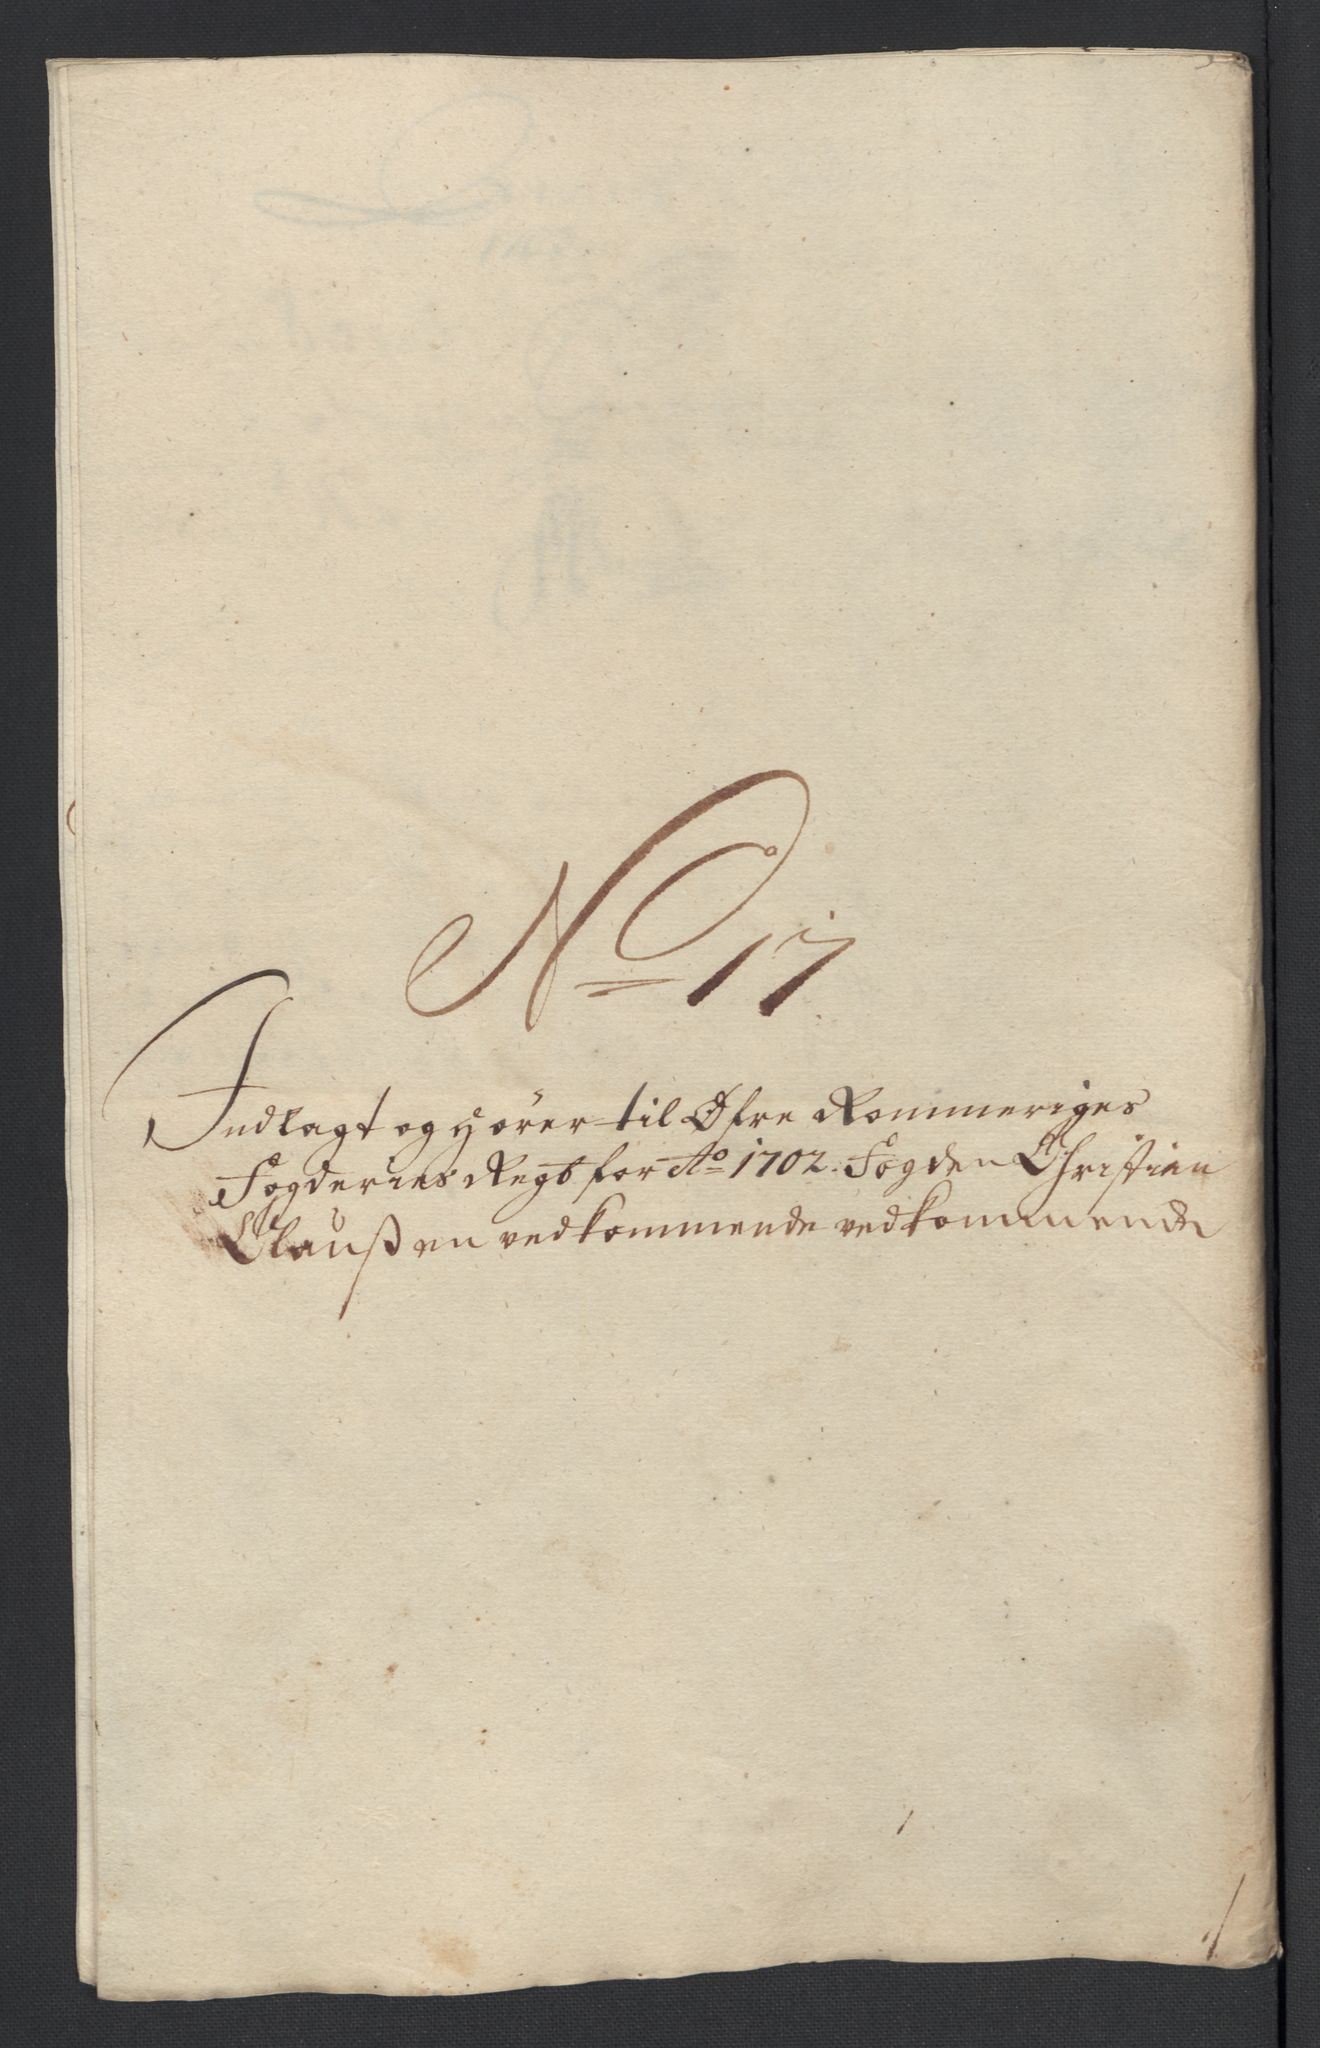 No 17
Indlagt og hörer til Øfre Rommeriges
Fogderies Regb for Ao 1702. Fogden Christien
Claußen vedkommende vedkommende